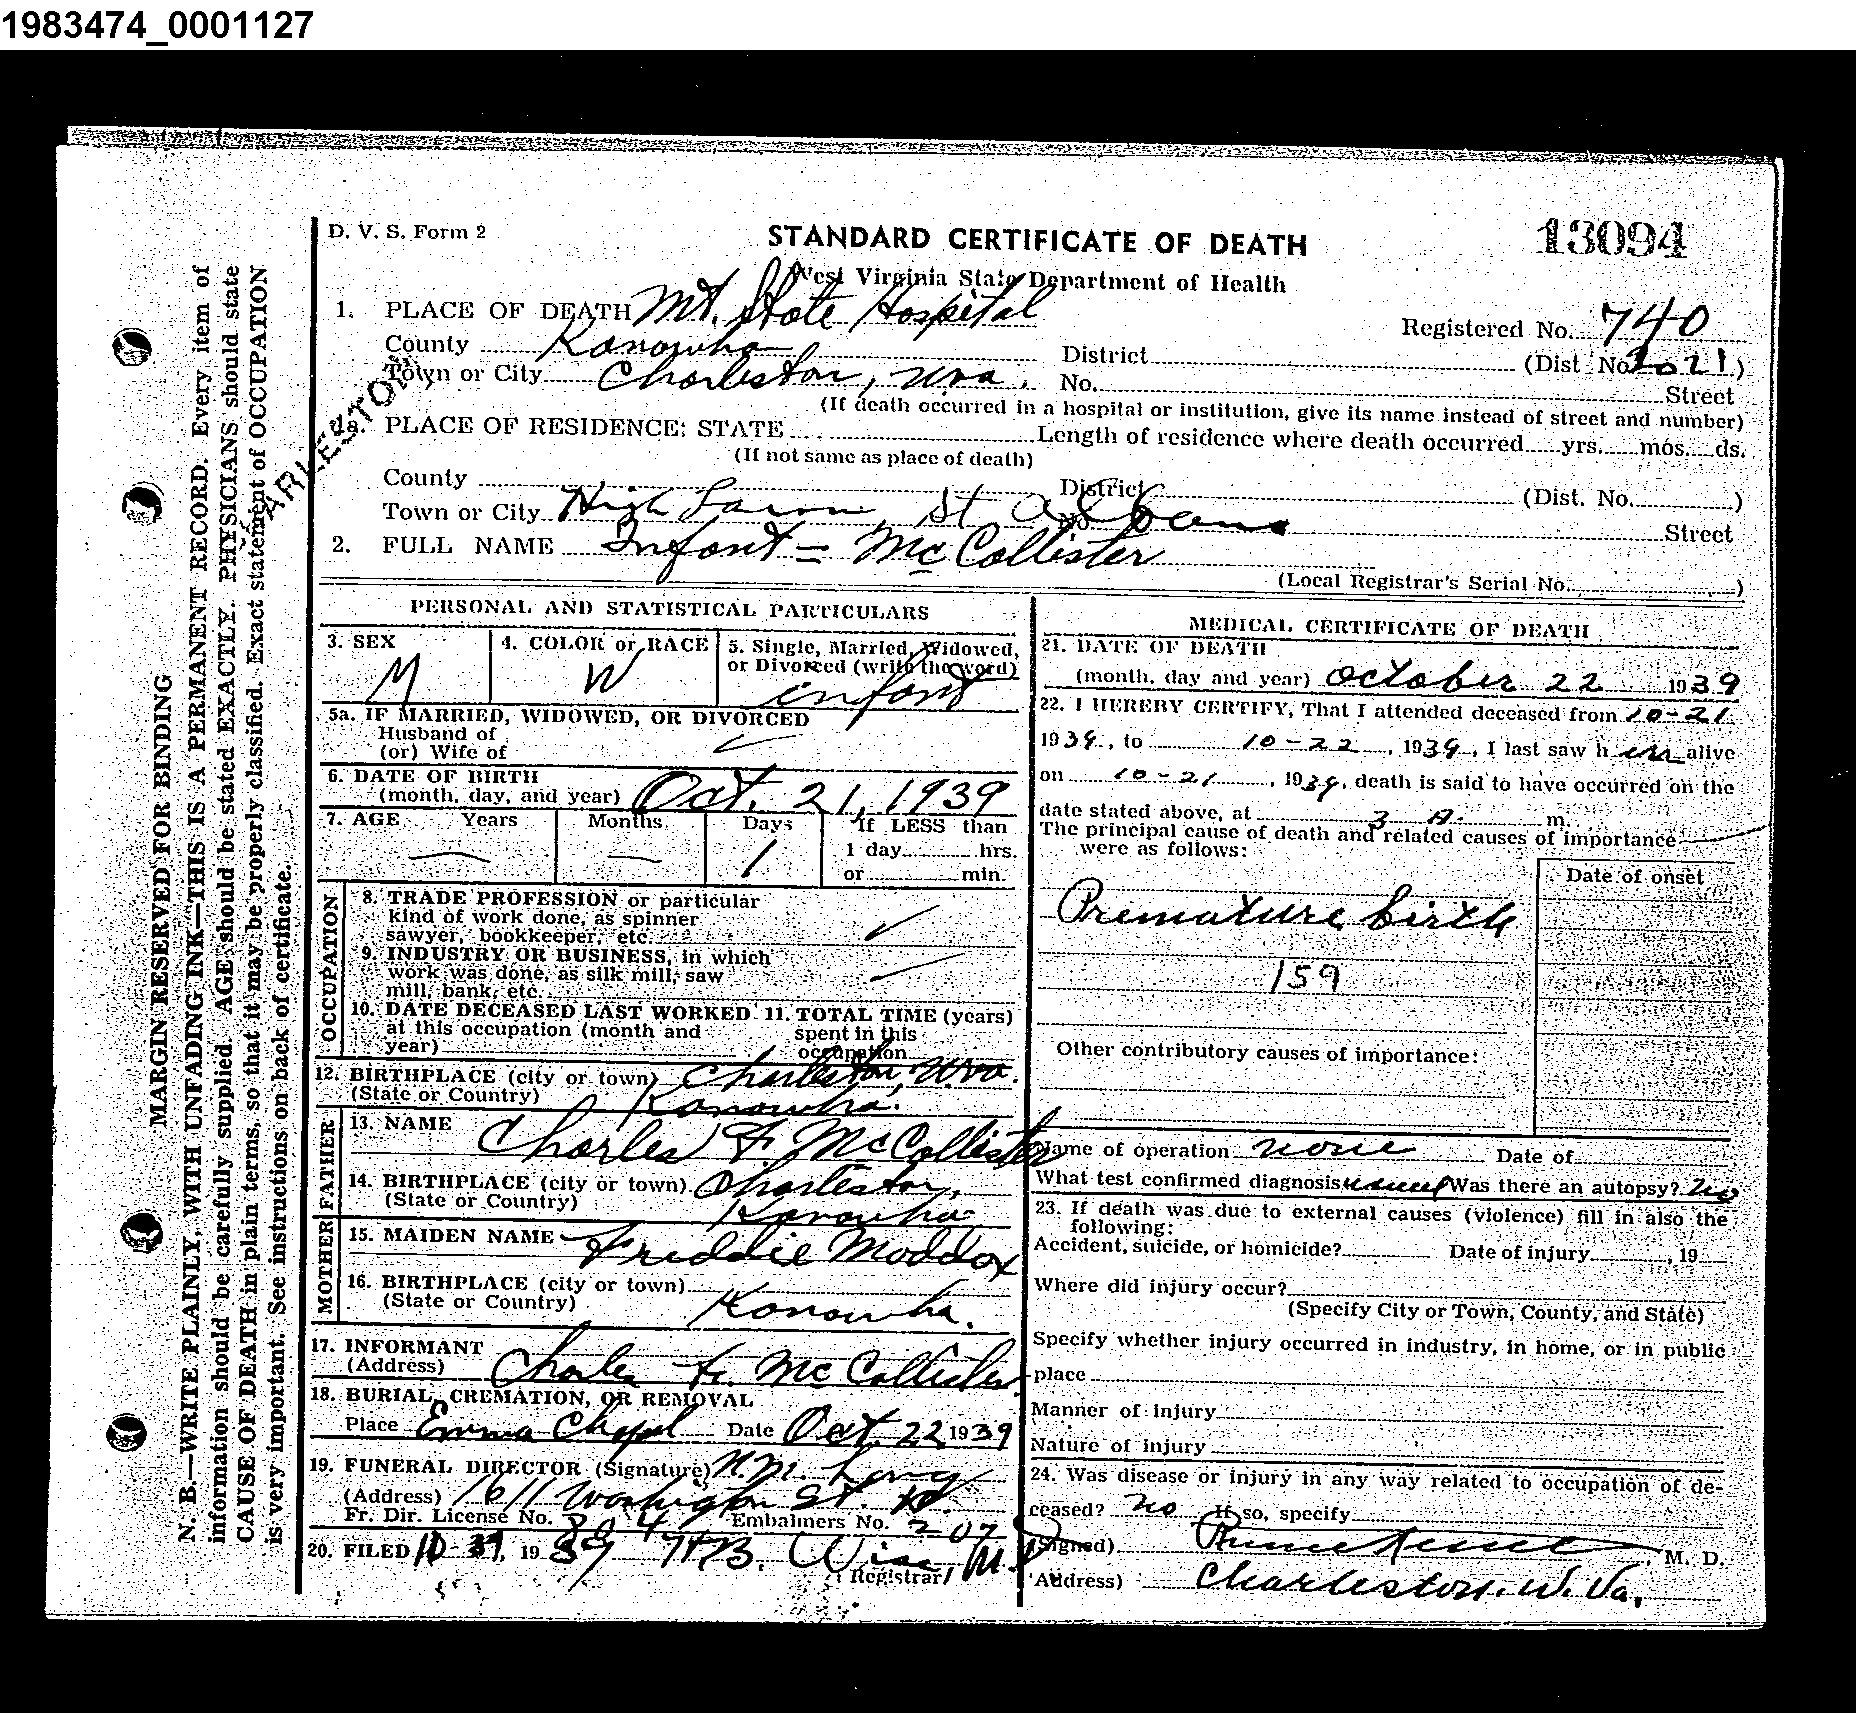 1983474_0001127
D. V. S. Form 2
STANDARD CERTIFICATE OF DEATH
13094
West Virginia State Department of Health
1. PLACE OF DEATH Mt. State Hospital
Registered No. 740
County Kanawha District (Dist. No. 2021)
Town or City Charleston, Wva. No. Street
(If death occurred in a hospital or institution, give its name instead of street and number)
CHARLESTON
1a. PLACE OF RESIDENCE: STATE Length of residence where death occurred yrs. mos. ds.
(If not same as place of death)
County District (Dist. No. )
Town or City High Lawn, St Albans No. Street
2. FULL NAME Infant = McCollister
(Local Registrar's Serial No. )
PERSONAL AND STATISTICAL PARTICULARS
3. SEX M
4. COLOR or RACE W
5. Single, Married, Widowed, or Divorced (write the word) infant
5a. IF MARRIED, WIDOWED, OR DIVORCED
Husband of
(or) Wife of
6. DATE OF BIRTH
(month, day, and year) Oct. 21, 1939
7. AGE Years Months Days If LESS than
1 1 day hrs.
or min.
OCCUPATION
8. TRADE PROFESSION or particular
kind of work done, as spinner
sawyer, bookkeeper, etc.
9. INDUSTRY OR BUSINESS, in which
work was done, as silk mill, saw
mill, bank, etc
10. DATE DECEASED LAST WORKED
at this occupation (month and
year)
11. TOTAL TIME (years)
spent in this
occupation
12. BIRTHPLACE (city or town) Charleston, Wva.
(State or Country) Kanawha.
FATHER
13. NAME Charles F. McCollister
14. BIRTHPLACE (city or town) Charleston,
(State or Country) Kanawha
MOTHER
15. MAIDEN NAME Freddie Maddox
16. BIRTHPLACE (city or town)
(State or Country) Kanawha.
17. INFORMANT
(Address) Charles F. McCollister
18. BURIAL, CREMATION, OR REMOVAL
Place Emma Chapel Date Oct. 22 1939
19. FUNERAL DIRECTOR (Signature) Long
(Address) 1611 Washington St. W.
Fr. Dir. License No. Embalmers No.
20. FILED 19 39 Registrar
MEDICAL CERTIFICATE OF DEATH
21. DATE OF DEATH
(month, day and year) October 22 1939
22. I HEREBY CERTIFY, That I attended deceased from 10-21
1939, to 10-22, 1939, I last saw h im alive
on 10-21, 1939, death is said to have occurred on the
date stated above, at 3 A. m.
The principal cause of death and related causes of importance
were as follows:
Date of onset
Premature birth
159
Other contributory causes of importance:
Name of operation none Date of
What test confirmed diagnosis Was there an autopsy? no
23. If death was due to external causes (violence) fill in also the
following:
Accident, suicide, or homicide? Date of injury , 19
Where did injury occur?
(Specify City or Town, County, and State)
Specify whether injury occurred in industry, in home, or in public
place
Manner of injury
Nature of injury
24. Was disease or injury in any way related to occupation of de-
ceased? no If so, specify
(Signed) , M. D.
(Address) Charleston. W. Va.
MARGIN RESERVED FOR BINDING
N. B.—WRITE PLAINLY, WITH UNFADING INK—THIS IS A PERMANENT RECORD. Every item of
information should be carefully supplied. AGE should be stated EXACTLY. PHYSICIANS should state
CAUSE OF DEATH in plain terms, so that it may be properly classified. Exact statement of OCCUPATION
is very important. See instructions on back of certificate.